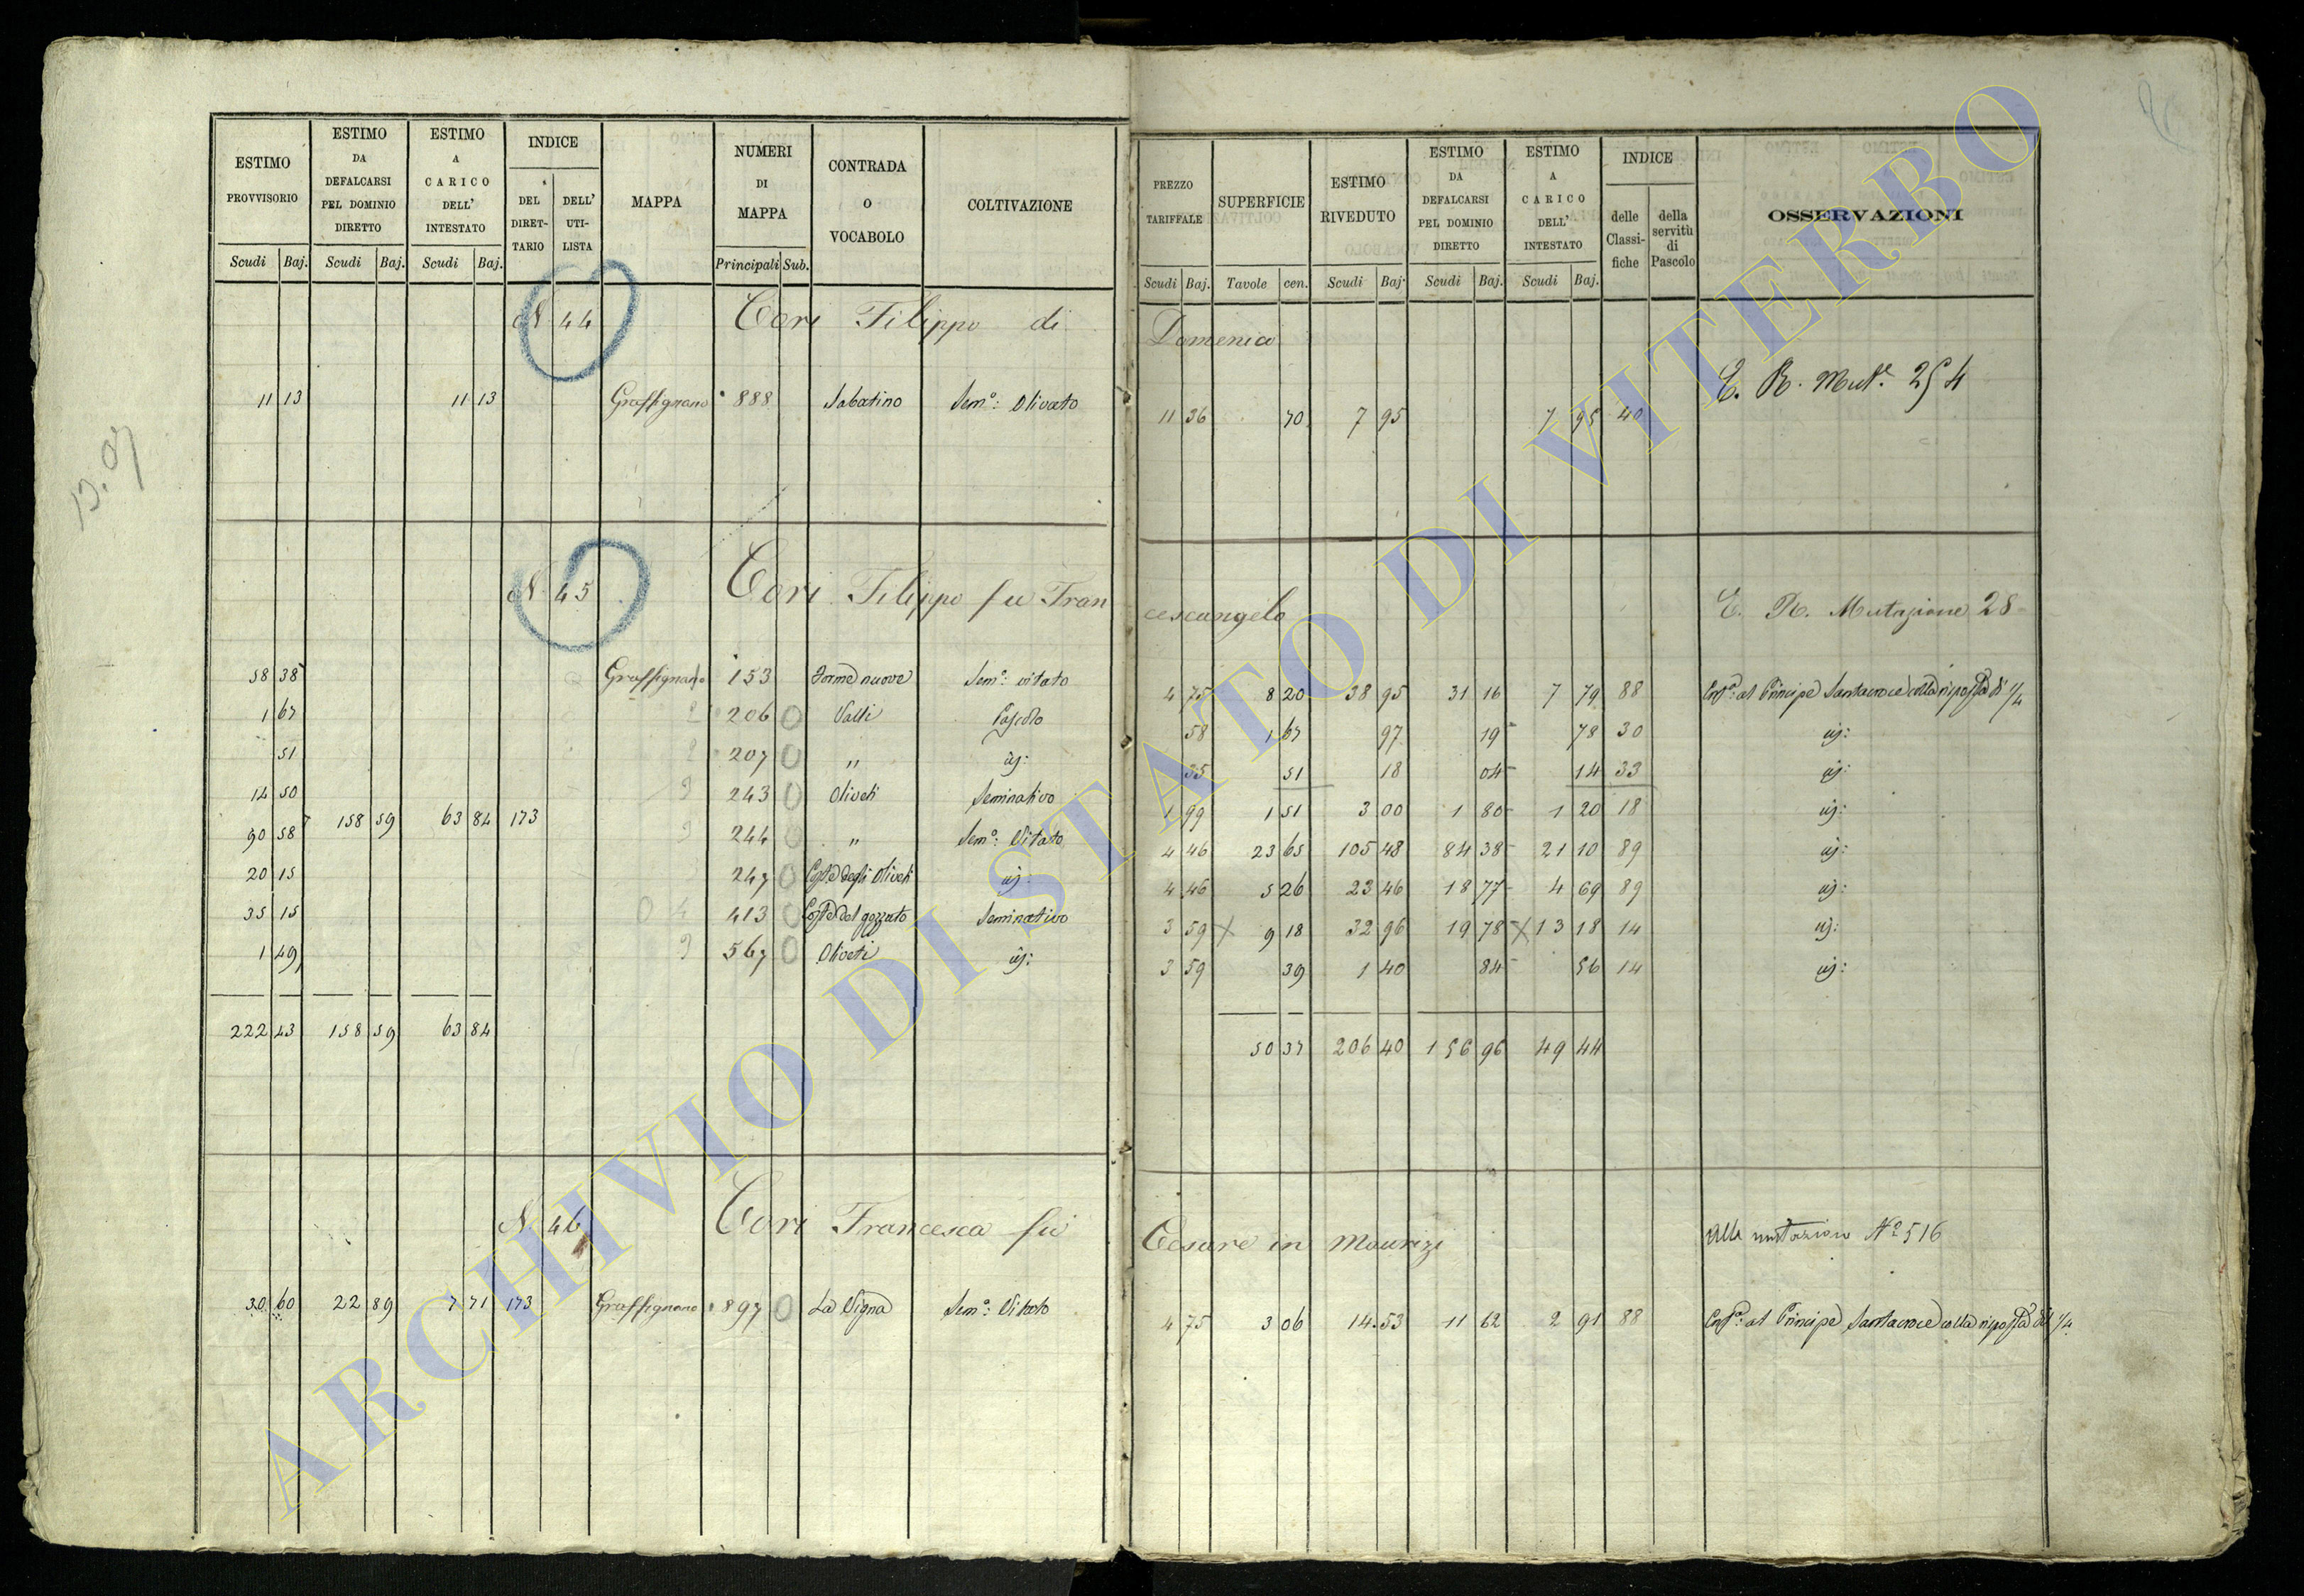 ESTIMO PROVVISORIO | ESTIMO DA DEFALCARSI PEL DOMINIO DIRETTO | ESTIMO A CARICO DELL' INTESTATO | INDICE | MAPPA | NUMERI DI MAPPA | CONTRADA O VOCABOLO | COLTIVAZIONE
DEL DIRETTARIO | DELL' UTILISTA
Scudi | Baj. | Scudi | Baj. | Scudi | Baj. | Principali | Sub.
N. 44 Cori Filippo di
11 13 | 11 13 | Graffignano | 888 | Sabatino | Sem.º: Olivato
N. 45 Cori Filippo fu Fran
58 38 | Graffignano | 153 | Forme nuove | Sem.º: vitato
1 67 | 206 | Valli | Pascolo
51 | 207 | " | id:
14 50 | 243 | Oliveti | Seminativo
90 58 | 158 59 | 63 84 | 173 | 244 | " | Sem.º: Vitato
20 15 | 247 | Coste degli Oliveti | id:
35 15 | 413 | Coste del gozzuto | Seminativo
1 49 | 567 | Oliveti | id:
222 43 | 158 59 | 63 84
N. 46 Cori Francesca fu
30 60 | 22 89 | 7 71 | 173 | Graffignano | 897 | La Vigna | Sem.º: Vitato
PREZZO TARIFFALE | SUPERFICIE | ESTIMO RIVEDUTO | ESTIMO DA DEFALCARSI PEL DOMINIO DIRETTO | ESTIMO A CARICO DELL' INTESTATO | INDICE | OSSERVAZIONI
delle Classifiche | della servitù di Pascolo
Scudi | Baj. | Tavole | cen. | Scudi | Baj. | Scudi | Baj. | Scudi | Baj.
Domenico
E. R. Mut.e 254
11 36 | 70 | 7 95 | 7 95 | 40
cescangelo | E. R. Mutazione 28
4 75 | 8 20 | 38 95 | 31 16 | 7 79 | 88 | Enf.ª al Principe Santacroce colla riposta di 1/4
58 | 1 67 | 97 | 19 | 78 | 30 | id:
35 | 51 | 18 | 04 | 14 | 33 | id:
1 99 | 1 51 | 3 00 | 1 80 | 1 20 | 18 | id:
4 46 | 23 65 | 105 48 | 84 38 | 21 10 | 89 | id:
4 46 | 5 26 | 23 46 | 18 77 | 4 69 | 89 | id:
3 59 | 9 18 | 32 96 | 19 78 | 13 18 | 14 | id:
3 59 | 39 | 1 40 | 84 | 56 | 14 | id:
50 37 | 206 40 | 156 96 | 49 44
Cesare in Maurizi | Alla mutazione Nº 516
4 75 | 3 06 | 14.53 | 11 62 | 2 91 | 88 | Enf.ª al Principe Santacroce colla riposta del 1/4
ARCHIVIO DI STATO DI VITERBO